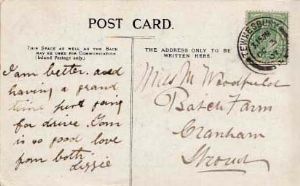 POST CARD.
THIS SPACE AS WELL AS THE BACK
MAY BE USED FOR COMMUNICATION
(Inland Postage only.)
THE ADDRESS ONLY TO BE
WRITTEN HERE.
I am better and
having a grand
time here going
for drive. Tom
is so good love
from both
Lizzie
Miss M Woodfield
Farm
Cranham
Stroud